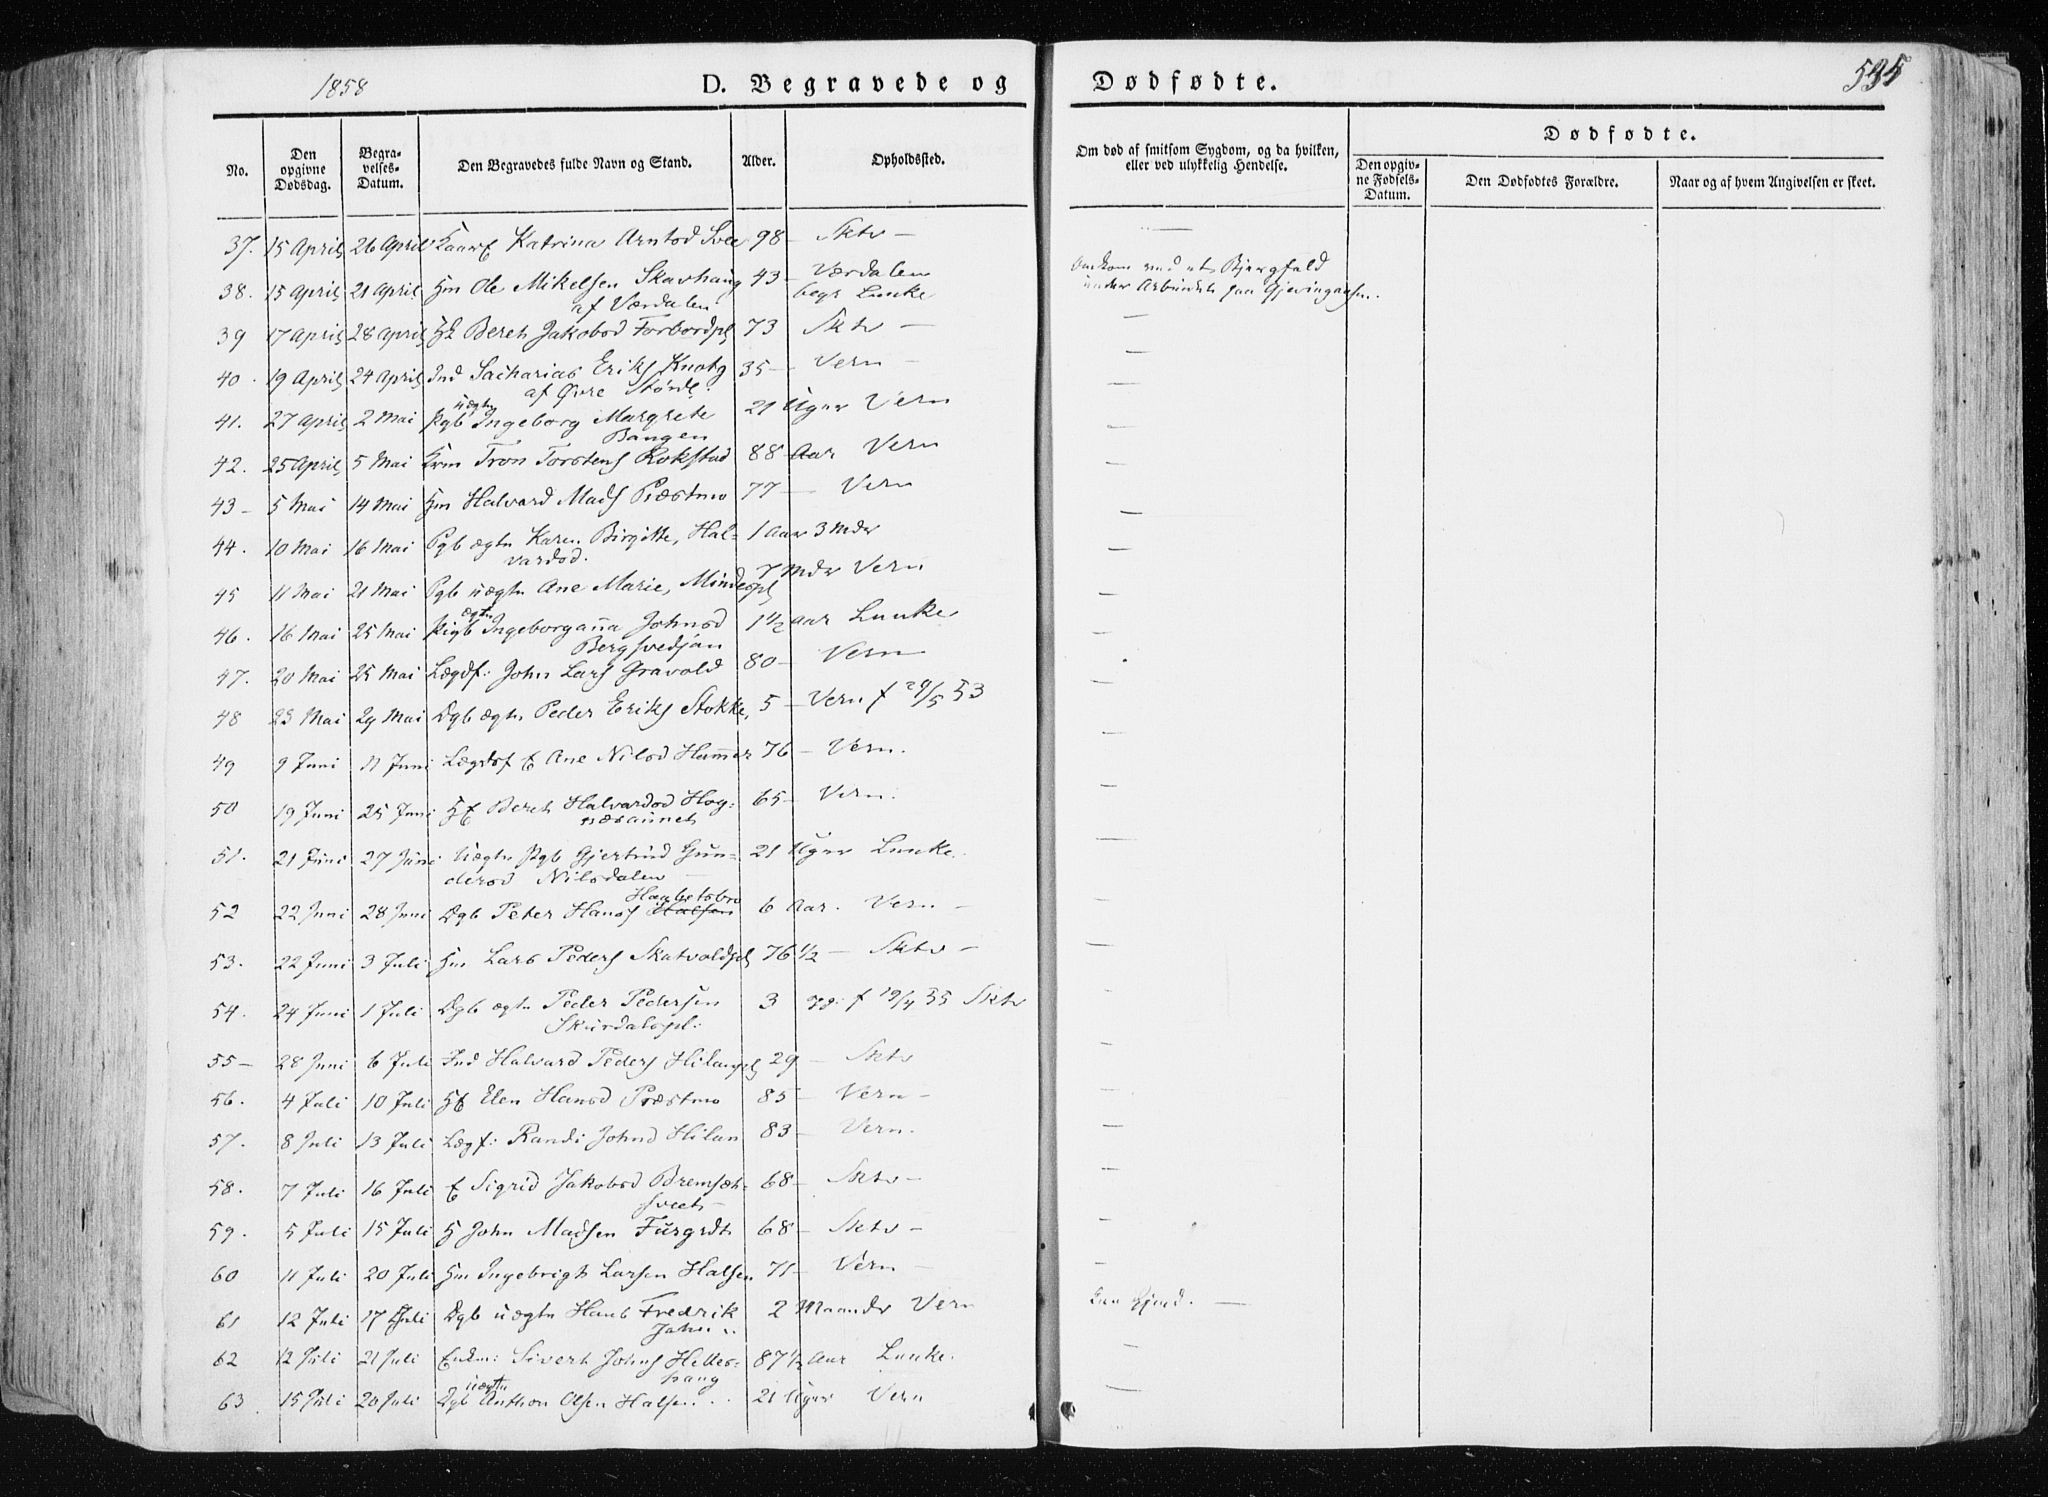 1858
D. Begravede og Dødfødte.
535
No.
Den opgivne Dødsdag.
Begra-velses-Datum.
Den Begravedes fulde Navn og Stand.
Alder.
Opholdssted.
Om død af smitsom Sygdom, og da hvilken, eller ved ulykkelig Hendelse.
Dødfødte.
Den opgiv-ne Fødsels-Datum.
Den Dødfødtes Forældre.
Naar og af hvem Angivelsen er skeet.
37. 15 April 26 April Katrina Arntsd Sve 98 — Sktv —
38. 15 April 21 April Gm Ole Mikelsen Skavhaug 43 — Værdalen
af Værdalen begr Lunke
Omkom ved et Bjergfald
under Arbeidet paa Gjevingaasen.
39 17 April 28 April Beret Jakobsd Forbordpl 73 Sktv —
40. 19 April 24 April Ind Sacharias Eriks Knotg 35 — Vern —
af Øvre Størdl.
41. 27 April 2 Mai Pgb uægte Ingeborg Margrete 21 Uger Vern
Bangen
42. 25 April 5 Mai Tron Torstens Rokstad 88 Aar Vern
43 — 5 Mai 14 Mai Gm Halvard Mads Præstmo 77 — Vern
44. 10 Mai 16 Mai Pgb ægte Karen Birgitte, Hal- 1 Aar 3 Mdr
vardsd.
45 11 Mai 21 Mai Pgb uægte Ane Marie, Mindespl 7 Mdr Vern
46. 16 Mai 25 Mai Pigb ægte Ingeborganna Johnsd 1 1/2 Aar Lunke
Bergsvedjan
47. 20 Mai 25 Mai Lægdf: John Lars Gravold 80 — Vern
48 23 Mai 29 Mai Dgb ægte Peder Eriks Stokke, 5 — Vern f 29/5 53
49 9 Juni 11 Juni Lægdsf E Ane Nilsd Hammer 76 — Vern.
50 19 Juni 25 Juni GE Beret Halvardsd Hog- 65 — Vern.
næsaunet
51. 21 Juni 27 Juni Uægte Pgb Gjertrud Gun- 21 Uger Lunke.
dersd Nilsdalen —
52 22 Juni 28 Juni Dgb Peter Hans Halsen Haabetsbro 6 Aar. Vern —
53. 22 Juni 3 Juli Gm Lars Peders Skatvoldspl 76 1/2 — Sktv —
54. 24 Juni 1 Juli Dgb ægte Peder Pedersen 3 f 19/4 55 Sktv
Skurdalspl.
55 — 28 Juni 6 Juli Ind Halvard Peders Hilanpl 29 — Sktv
56. 4 Juli 10 Juli GE Elen Hansd Præstmo 85 — Vern —
57. 8 Juli 13 Juli Lægf: Randi Johnsd Hilan 83 — Vern.
58. 7 Juli 16 Juli E Sigrid Jakobsd Bremset- 68 — Sktv —
sveet
59. 5 Juli 15 Juli G John Madsen Furgrdt 68 — Sktv —
60 11 Juli 20 Juli Gm Ingebrigt Larsen Halsen 71 — Vern —
61 12 Juli 17 Juli Dgb uægte Hans Fredrik 2 Maander Vern
John..
62 12 Juli 21 Juli Enkm: Sivert Johns Hilles- 87 1/2 Aar Lunke.
haug
63. 15 Juli 20 Juli Dgb uægte Anthon Olsen Halsen.. 21 Uger Vern